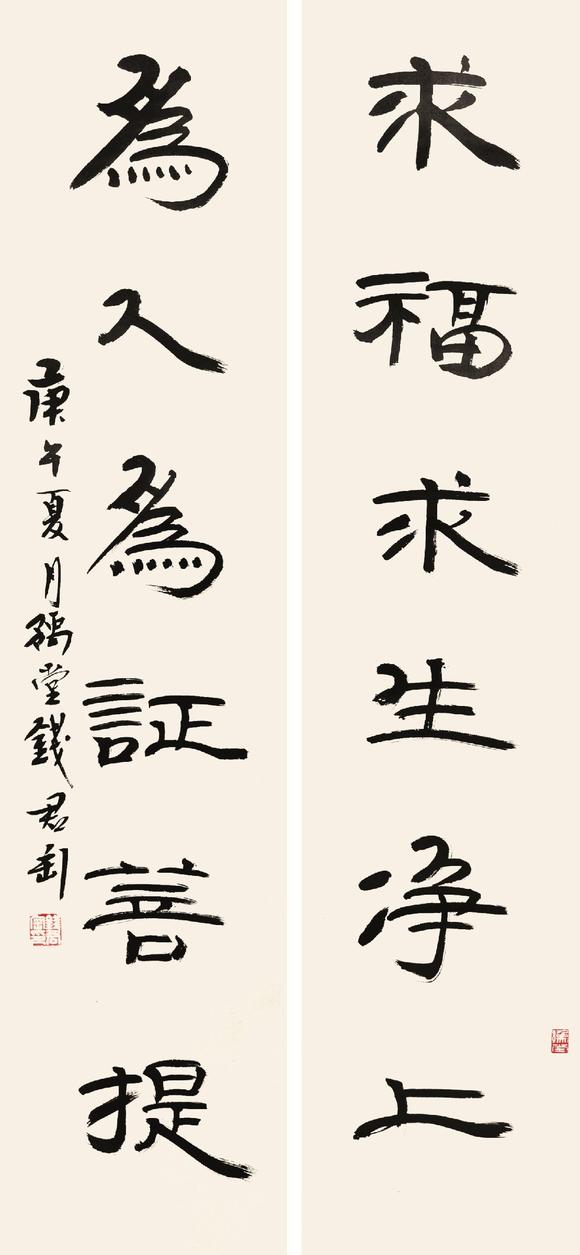 求福求生净上
為人為証菩提
庚午夏月豫堂錢君匋